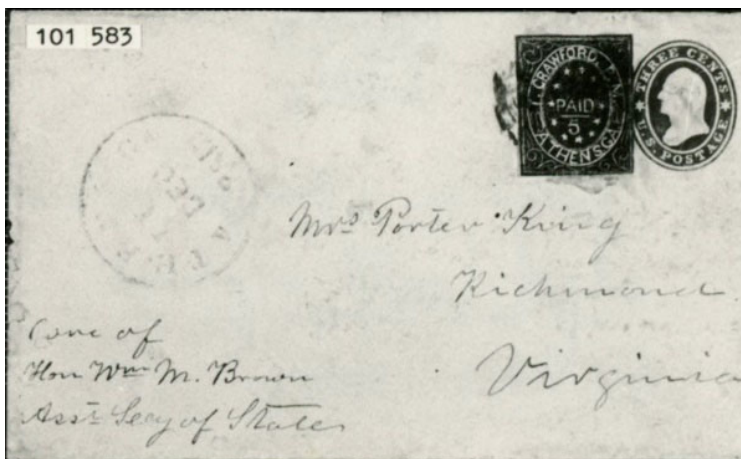 101 583
T. CRAWFORD, P.M.
PAID
5
ATHENS GA.
THREE CENTS
U.S. POSTAGE
Mrs Porter King
Richmond
Virginia
Care of
Hon Wm M. Brown
Asst Secy of State